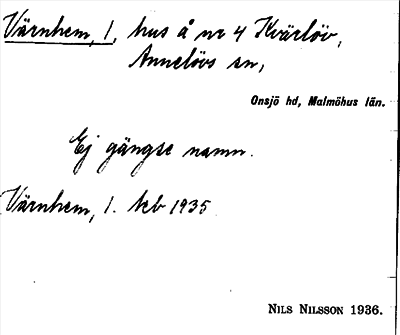 Värnhem, 1, hus å nr 4 Kvärlöv,
Annelövs sn,
Onsjö hd, Malmöhus län.
Ej gängse namn.
Värnhem, 1. tekb 1935
NILS NILSSON 1936.